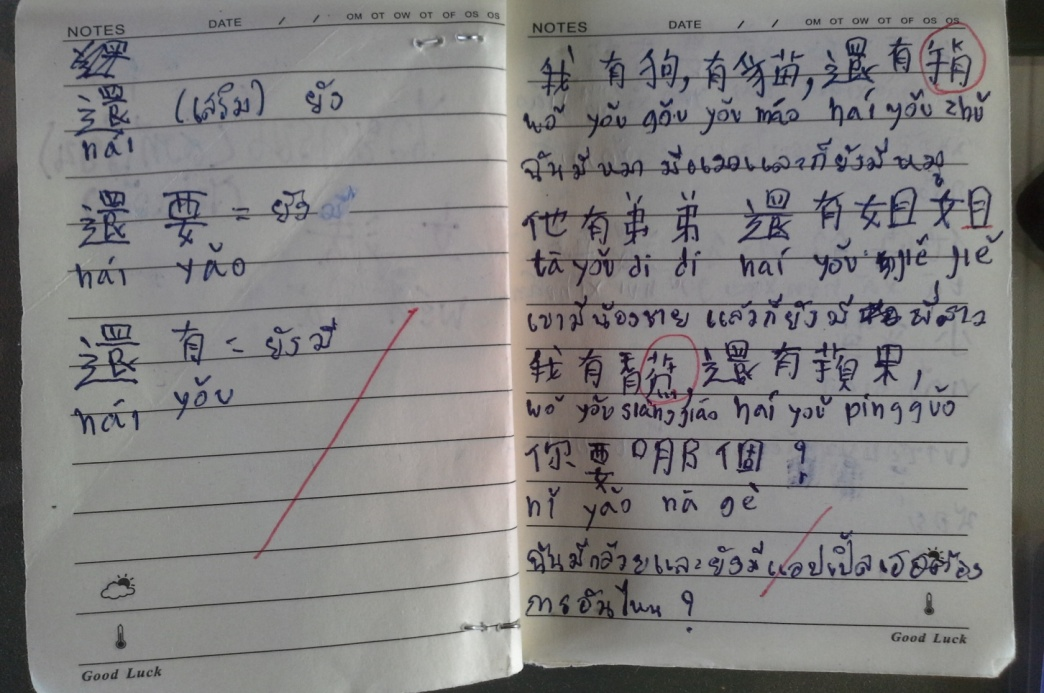 NOTES DATE / / OM OT OW OT OF OS OS
還 (เสริม) ยัง
hái
還 要 = ยัง
hái yào
還 有 = ยังมี
hái yǒu
Good Luck
NOTES DATE / / OM OT OW OT OF OS OS
我 有 狗, 有 貓, 還 有
wǒ yǒu gǒu yǒu māo hái yǒu zhū
ฉันมีหมา มีแมวและก็ยังมีหมู
他 有 弟 弟 還 有 姐 姐
tā yǒu dì di hái yǒu jiě jiě
เขามีน้องชาย แล้วก็ยังมี พี่สาว
我 有 香 蕉, 還 有 蘋 果,
wǒ yǒu siāng jiāo hái yǒu píngguǒ
你 要 哪 個 ?
nǐ yào nǎ gè
ฉันมีกล้วยและยังมีแอปเปิ้ลเธอต้อง
การอันไหน ?
Good Luck